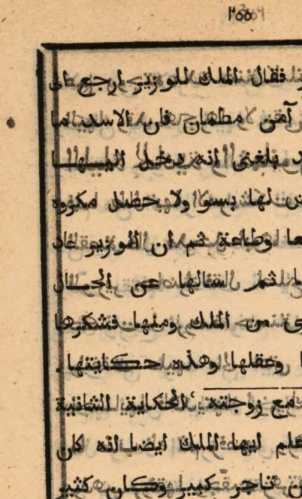 ٢٥٥
فقال الملك للوزير ارجع الى
آمن مطمان فان الاسد ما
بلغنى انه يدخل اليها
لها بسو ولا حصل مكروه
وطاعة ثم ان الوزير عاد
ثم سالها عن الحال
من الملك ومنها فشكرها
وعقلها وهذه حكايتها.
مع زوجته الحكاية الثانية
ايها الملك ايضا انه كان
تاجر كبير وكان كثير